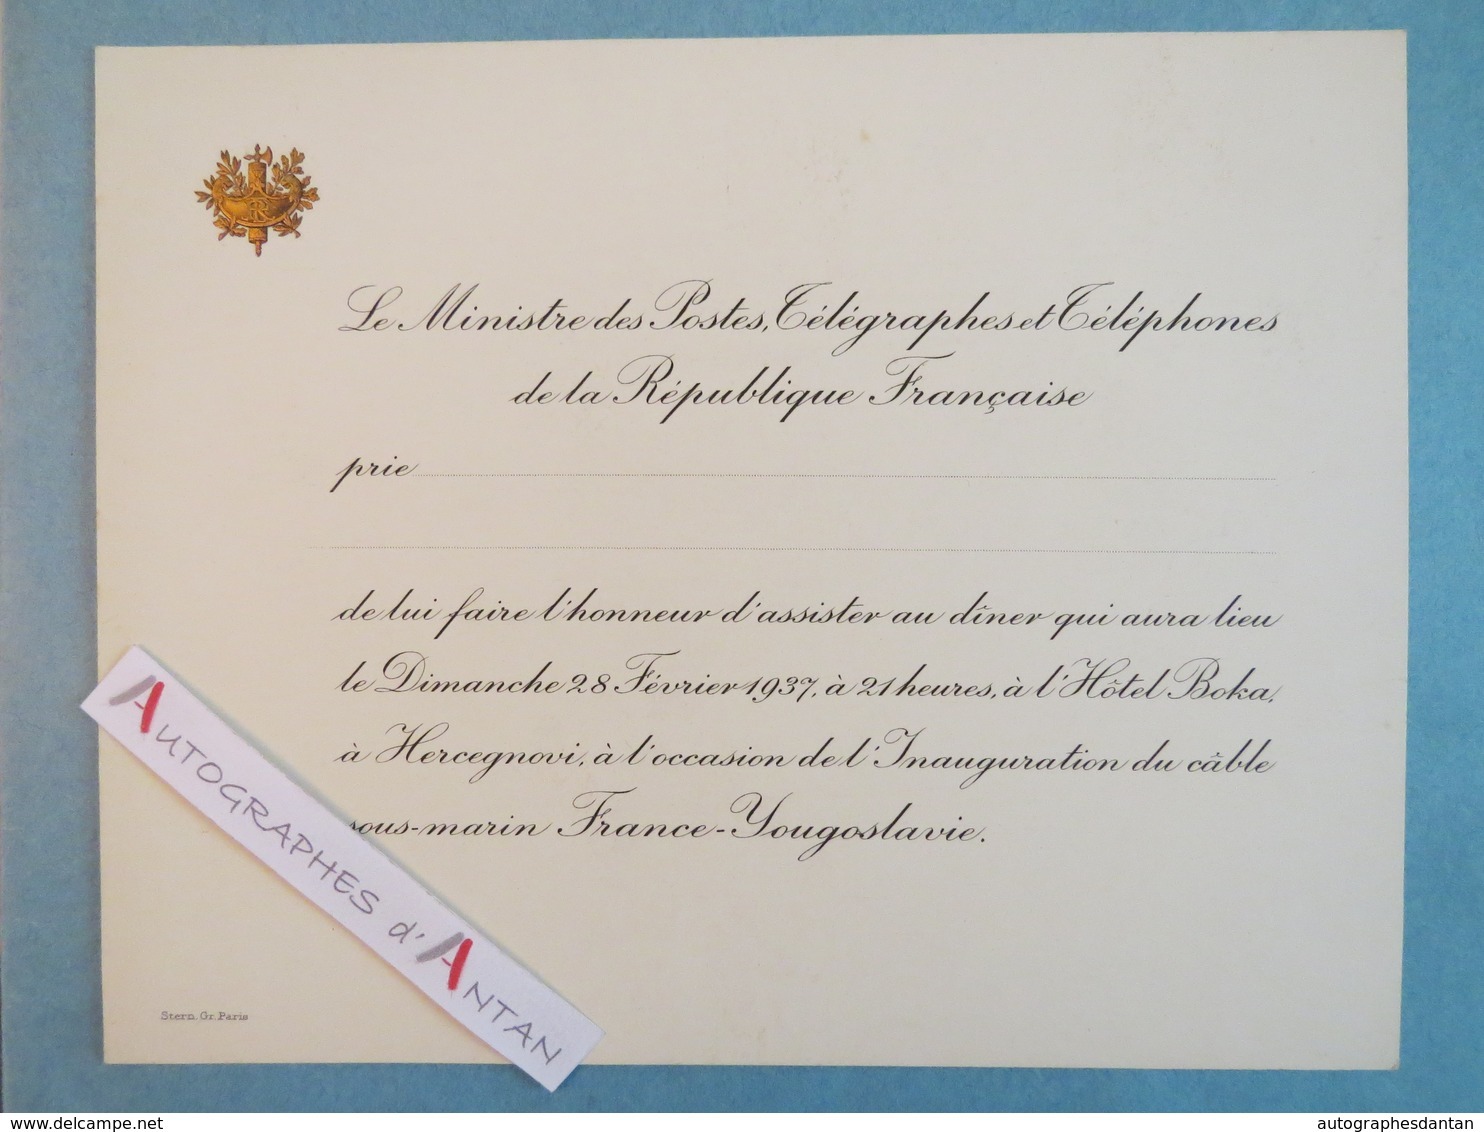 RF
Le Ministre des Postes, Télégraphes et Téléphones
de la République Française
prie
de lui faire l'honneur d'assister au dîner qui aura lieu
le Dimanche 28 Février 1937, à 21 heures, à l'Hôtel Boka,
à Hercegnovi, à l'occasion de l'Inauguration du câble
sous-marin France-Yougoslavie.
AUTOGRAPHES d'ANTAN
Stern. Gr. Paris
www.delcampe.net
autographesdantan